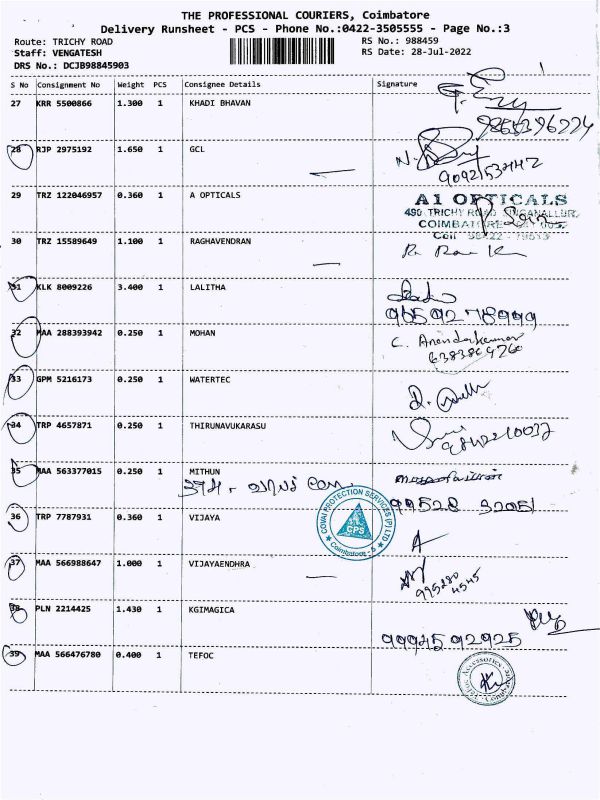 THE PROFESSIONAL COURIERS, Coimbatore
Delivery Runsheet - PCS - Phone No.:0422-3505555 - Page No.:3
Route: TRICHY ROAD RS No.: 988459
Staff: VENGATESH RS Date: 28-Jul-2022
DRS No.: DCJB98845903
S No Consignment No Weight PCS Consignee Details Signature
27 KRR 5500866 1.300 1 KHADI BHAVAN
28 RJP 2975192 1.650 1 GCL
29 TRZ 122046957 0.360 1 A OPTICALS
A1 OPTICALS
490 TRICHY ROAD SINGANALLUR,
30 TRZ 15589649 1.100 1 RAGHAVENDRAN
31 KLK 8009226 3.400 1 LALITHA
9659278999
32 MAA 288393942 0.250 1 MOHAN
C. Anandakumar
33 GPM 5216173 0.250 1 WATERTEC
34 TRP 4657871 0.250 1 THIRUNAVUKARASU
35 MAA 563377015 0.250 1 MITHUN
99528 32051
36 TRP 7787931 0.360 1 VIJAYA
COVAI PROTECTION SERVICES (P) LTD
CPS
Coimbatore - 5
37 MAA 566988647 1.000 1 VIJAYAENDHRA
995280
4545
38 PLN 2214425 1.430 1 KGIMAGICA
9994592925
39 MAA 566476780 0.400 1 TEFOC